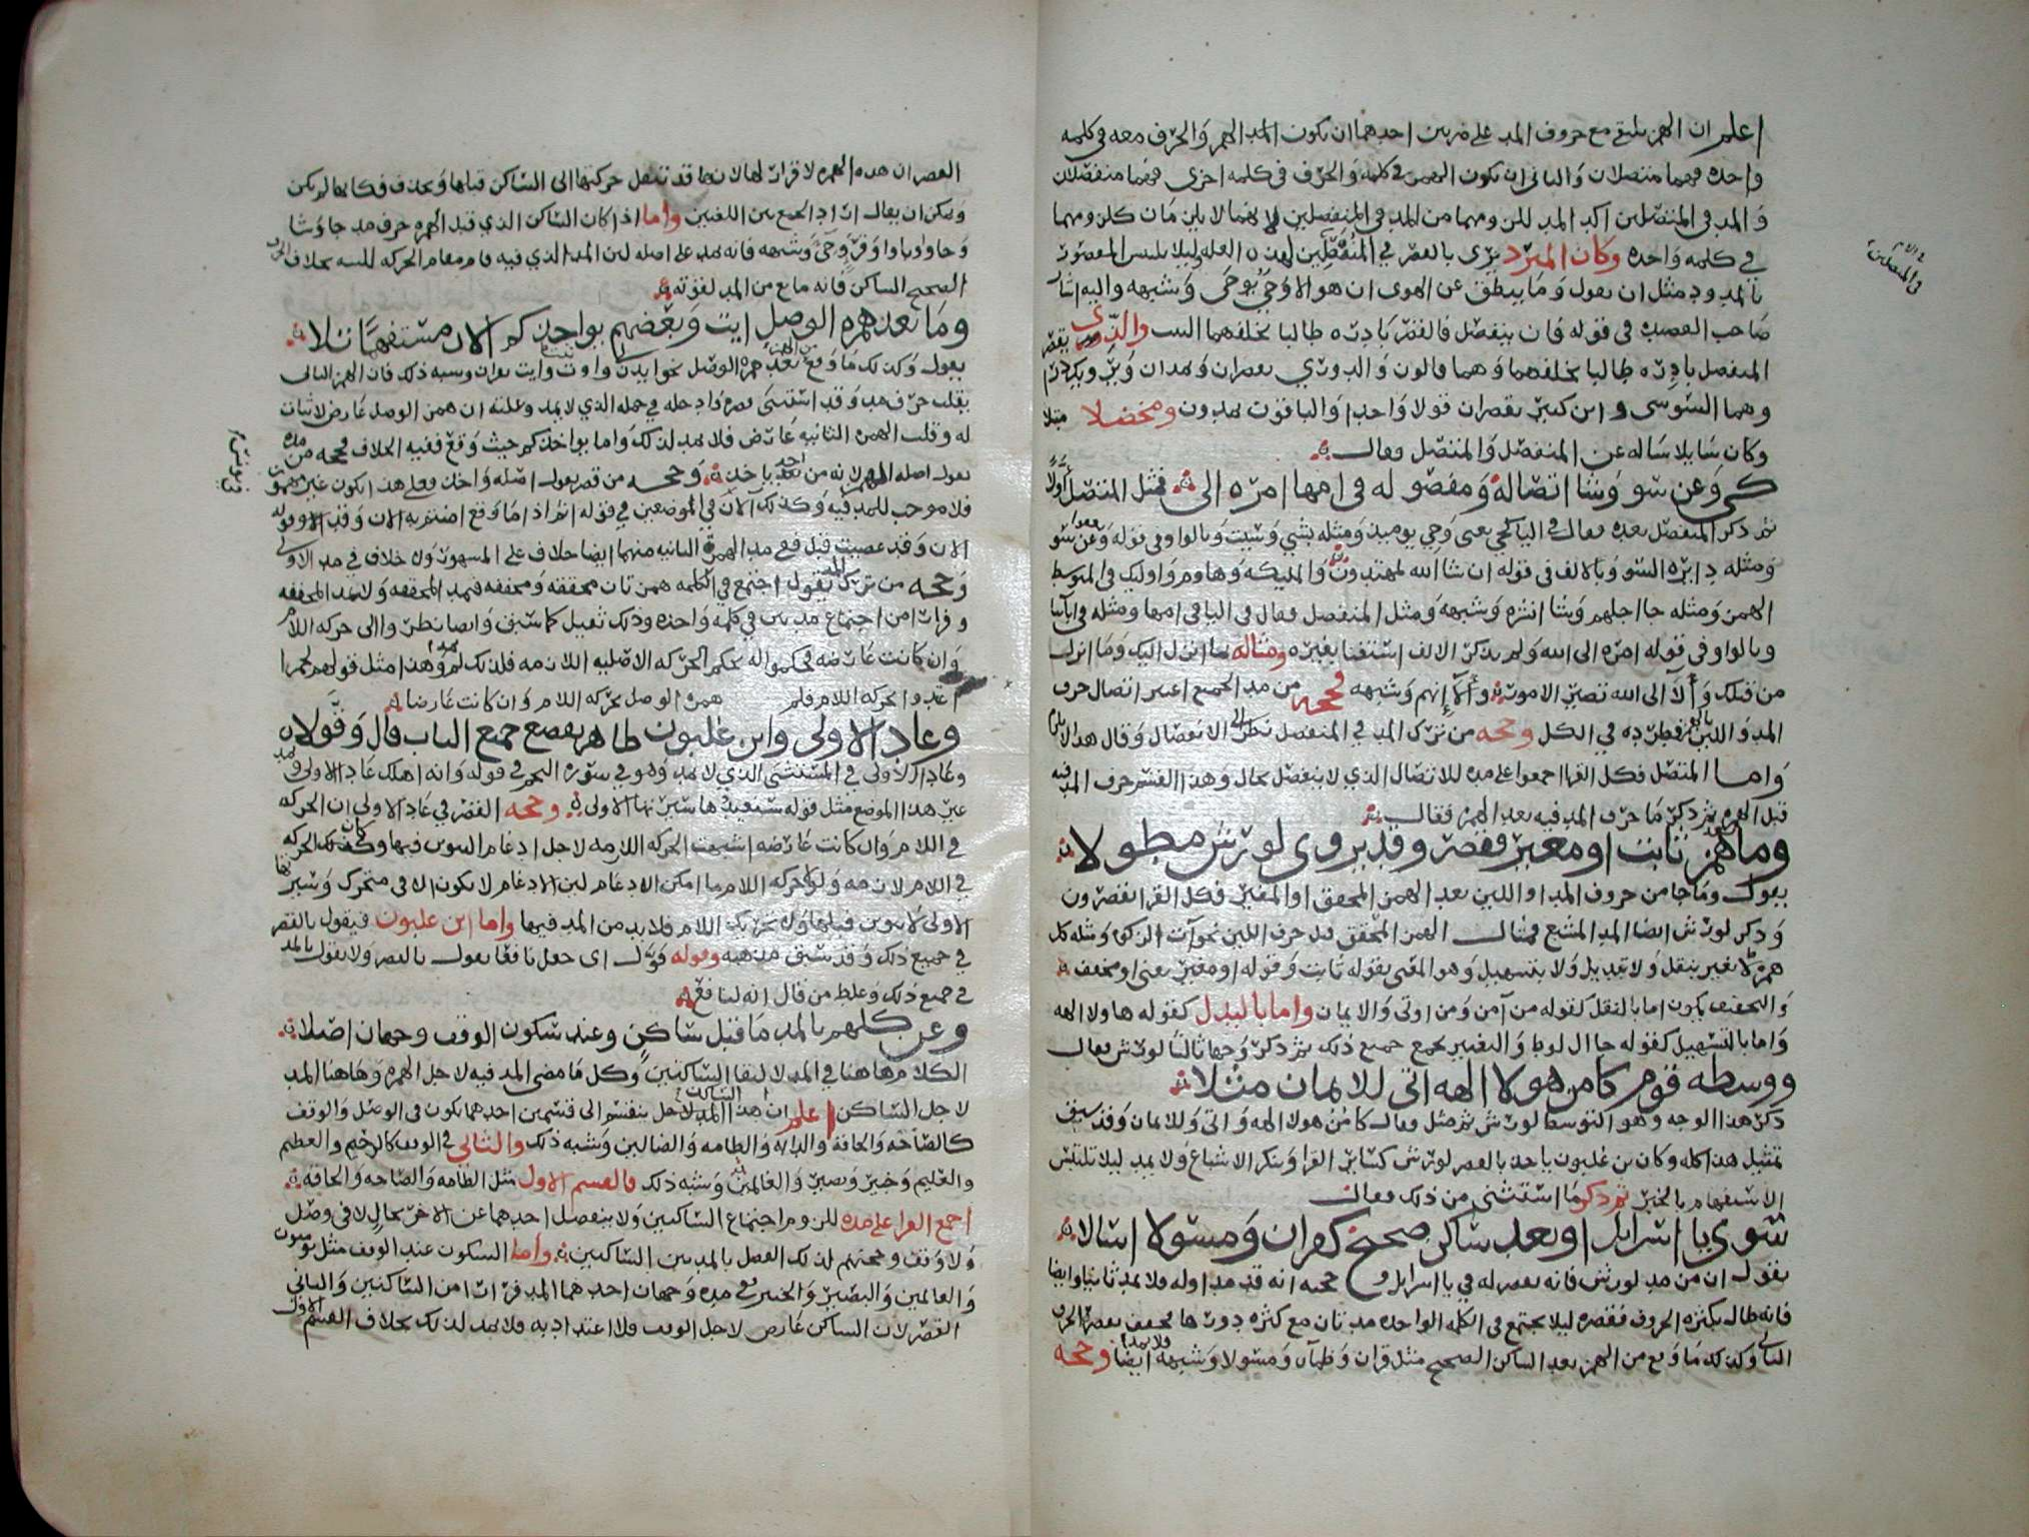 اعلم ان الهمز يلتقي مع حروف المد على ضربين احدهما ان يكون المد الهمز والحرف معه في كلمه
واحده فهما متصلان والثاني ان يكون الهمز في كلمه والحرف في كلمه اخرى فهما منفصلان
والمد في المتصلين اكد المد للزومهما من المد في المنفصلين لانهما لا يلزمان كلزومهما
في كلمه واحده وكان المبرد يرى بالقصر في المنفصلين لهذه العله وليلا يلتبس المقصور
بالممدود مثل ان يقول وما ينطق عن الهوى ان هو الا وحي يوحى وشبهه واليه اشار
صاحب القصيد في قوله فان ينفصل فالقصر بادره طالبا بخلفهما البيت والدوري يقصر
المنفصل بادره طالبا بخلفهما وهما قالون والدوري يقصران ويمدان
وهما السوسي وابن كثير يقصران قولا واحدا والباقون يمدون ومخضلا مبتلا
وكان سايلا ساله عن المنفصل والمتصل فقال
كجي وعن سو وشا اتصاله ومفصوله في امها امره الى فمثل المتصل اولا
ثم ذكر المنفصل بعده فقال في اليا كجي يعني وجي يوميذ ومثله بشي وسيت وبالواو في قوله وعن سو
ومثله دايره السو وبالالف في قوله ان شا الله لمهتدون والمليكه وهاوم واوليك في المتوسط
الهمز ومثله جا اجلهم وشا انشره وشبهه ومثل المنفصل فقال في اليا في امها ومثله في اياتنا
وبالواو في قوله امره الى الله ولم يذكر الالف استغنا بغيره ومثاله بما انزل اليك وما انزل
من قبلك والا الى الله تصير الامور والا انهم وشبهه فحجه من مد الجميع اعتبر اتصال حرف
المد واللين بالهمز فطرده في الكل وحجه من ترك المد في المنفصل نظر الى الانفصال وقال هذا لا يلزم
واما المتصل فكل القرا اجمعوا على مده للاتصال الذي لا ينفصل بحال وهذا القسم حرف المد فيه
قبل الهمز ثم ذكر ما حرف المد فيه بعد الهمز فقال
وما بعد همز ثابت او مغير فقصر وقد يروى لورش مطولا
يقول وما جا من حروف المد او اللين بعد الهمز المحقق او المغير فكل القرا يقصرون
وذكر لورش ايضا المد المشبع فمثال الهمز المحقق قبل حرف اللين نحو آت الزكوه ومثله كل
همز لا يغير بنقل ولا تبديل ولا بتسهيل وهو المعني بقوله ثابت وقوله او مغير يعني او مخفف
والتخفيف يكون اما بالنقل كقوله من آمن ومن اوتي والايمان واما بالبدل كقوله هاولا الهه
واما بالتسهيل كقوله جا ال لوط والتغيير يجمع جميع ذلك ثم ذكر وجها ثالثا لورش فقال
ووسطه قوم كامن هولا الهه اتى للايمان مثلا
ذكر هذا الوجه وهو التوسط لورش ثم مثل فقال كامن هولا الهه واتى وللايمان وقد سبق
تمثيل هذا كله وكان بن غلبون ياخذ بالقصر لورش كساير القرا وينكر الاشباع ولا يمد ليلا تلتبس
الاستفهام بالخبر ثم ذكر ما استثنى من ذلك فقال
سوى يا اسرايل او بعد ساكن صحيح كقران ومسولا اسالا
يقول ان من مد لورش فانه يقصر له في يا اسرايل وحجه انه قد مد اوله فلا يمد ثانيا وايضا
فانه طال بكثره الحروف فقصره ليلا يجتمع في الكلمه الواحده مدتان مع كثره حروفها فخفف بقصر الحرف
الثاني وكذلك ما وقع من الهمز بعد الساكن الصحيح مثل قران وظمآن ومسولا وشبهه فلا يمد ايضا وحجه
القصر ان هذه الهمزه لا قرار لها لانها قد تنقل حركتها الى الساكن قبلها وتحذف فكانها لم تكن
ويمكن ان يقال اراد الجمع بين اللغتين واما اذا كان الساكن الذي قبل الهمزه حرف مد جاوشا
وجاوو وباوا وقرى وجى وشبهه فانه يمد على اصله لان المد الذي فيه قام مقام الحركه للينه بخلاف الحرف
الصحيح الساكن فانه مانع من المد لقوته
وما بعد همزه الوصل ايت وبعضهم يواخذكم الان مستفهما تلا
يقول وكذلك ما وقع بعد همزه الوصل نحو ايذن واوتمن وايت بقران وشبه ذلك فان الهمز الثاني
يقلب حرف مد وقد استثنى قصره وادخله في جمله الذي لا يمد وعلته ان همز الوصل عارض لا ثبات
له وقلب الهمزه الثانيه عارض فلا يمد لذلك واما يواخذكم حيث وقع ففيه الخلاف فحجه من مده
يقول اصله الهمز لانه من اخذ ياخذ وحجه من قصر يقول اصله واخذ فعلى هذا يكون غير مهموز
فلا موجب للمد فيه وكذلك الآن في الموضعين في قوله اثم اذا ما وقع امنتم به الان وقد او قوله
الان وقد عصيت قبل ففي مد الهمزه الثانيه منهما ايضا خلاف على المشهور ولا خلاف في مد الاولى
وحجه من ترك المد يقول اجتمع في الكلمه همزتان محققه ومخففه فيمد المحققه ولا يمد المخففه
وفرارا من اجتماع مدين في كلمه واحده وذلك ثقيل كما سبق وايضا نظروا الى حركه اللام
وان كانت عارضه فحكموا له بحكم الحركه الاصليه اللازمه فلذلك لم يمدوا وهذا مثل قولهم لحمرا
اعتدوا بحركه اللام فلم همزه الوصل بحركه اللام وان كانت عارضا
وعادا الاولى وابن غلبون طاهر بقصر جميع الباب قال وقولا
وعادا الاولى في المستثنى الذي لا يمد وهو في سوره النجم في قوله وانه اهلك عادا الاولى ويمد
غير هذا الموضع مثل قوله سنعيدها سيرتها الاولى وحجه القصر في عادا الاولى ان الحركه
في اللام وان كانت عارضه اشبهت الحركه اللازمه لاجل ادغام التنوين فيها وكان لذلك الحركه
في اللام لازمه ولولا حركه اللام ما امكن الادغام لان الادغام لا يكون الا في متحرك وسيرتها
الاولى لا تنوين قبلها ولا تحريك اللام فلا بد من المد فيها واما ابن غلبون فيقول بالقصر
في جميع ذلك وقد سبق مذهبه وقوله قول اى جعل نافعا يقول بالقصر ولا يقول بالمد
في جميع ذلك وغلط من قال انه لنافع
وعن كلهم بالمد ما قبل ساكن وعند سكون الوقف وجهان اصلا
الكلام هاهنا في المد لالتقا الساكنين وكل ما مضى المد فيه لاجل الهمزه وهاهنا المد
لاجل الساكن اعلم ان هذا المد لاجل الساكن ينقسم الى قسمين احدهما يكون في الوصل والوقف
كالصاخه والحاقه والدابه والطامه والضالين وشبه ذلك والثاني في الوقف كالرحيم والعظيم
والعليم وخبير وبصير والعالمين وشبه ذلك فالقسم الاول مثل الطامه والصاخه والحاقه
اجمع القرا على مده للزوم اجتماع الساكنين ولا ينفصل احدهما عن الاخر بحال لا في وصل
ولا وقف وحجتهم لذلك الفصل بالمد بين الساكنين واما السكون عند الوقف مثل يومنون
والعالمين والبصير والخبير ففي مده وجهان احدهما المد فرارا من الساكنين والثاني
القصر لان الساكن عارض لاجل الوقف فلا اعتداد به فلا يمد لذلك بخلاف القسم الاول